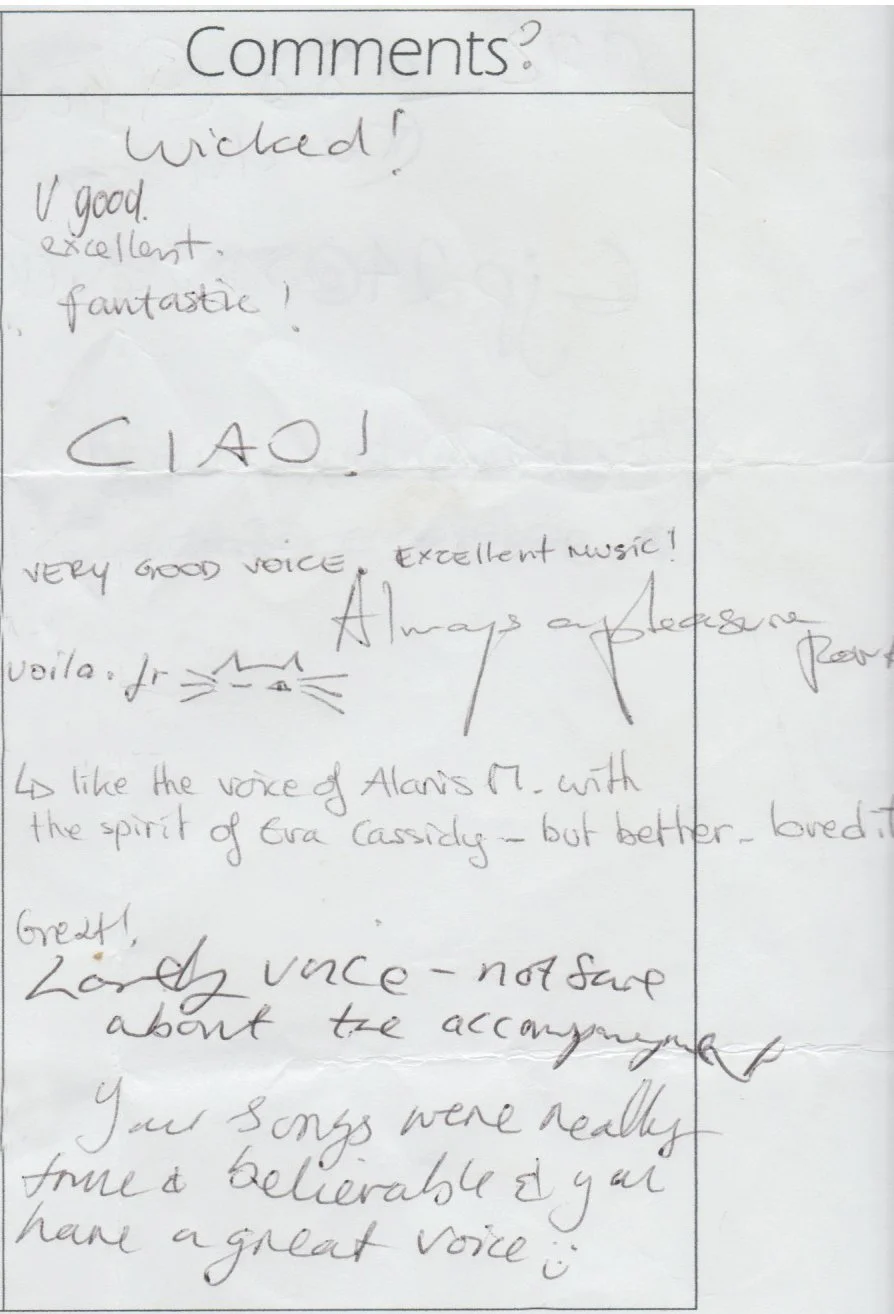 Comments?
Wicked!
V good.
excellent.
fantastic!
CIAO!
VERY GOOD VOICE. Excellent music!
Always a pleasure
voila.fr
↳ like the voice of Alanis M. with
the spirit of Eva Cassidy – but better – loved it
Great!,
Lovely voice – not sure
about the accompanyment
Your songs were really
true & believable & you
have a great voice :)